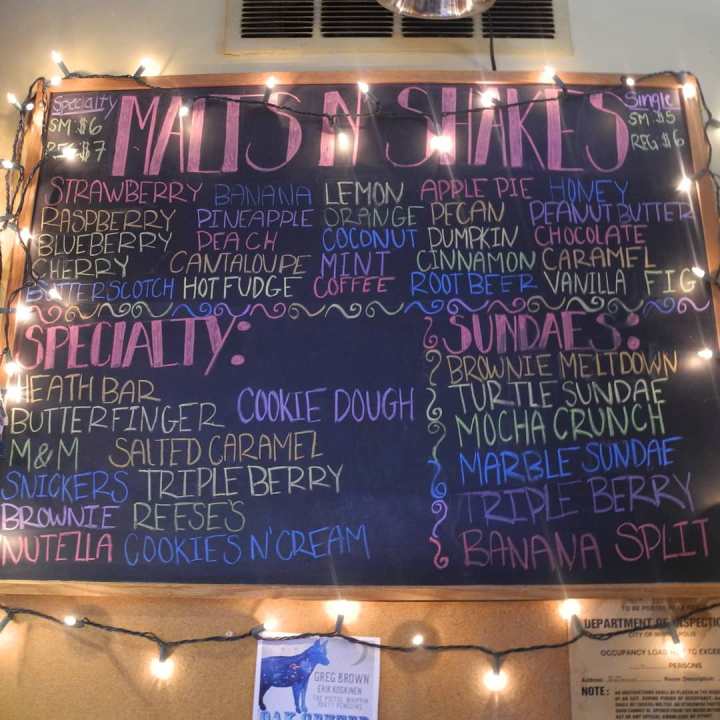 Specialty MALTS N' SHAKES Single
SM $6 SM $5
REG $7 REG $6
STRAWBERRY BANANA LEMON APPLE PIE HONEY
RASPBERRY PINEAPPLE ORANGE PECAN PEANUT BUTTER
BLUEBERRY PEACH COCONUT PUMPKIN CHOCOLATE
CHERRY CANTALOUPE MINT CINNAMON CARAMEL
BUTTERSCOTCH HOT FUDGE COFFEE ROOT BEER VANILLA FIG
SPECIALTY:
HEATH BAR
BUTTERFINGER COOKIE DOUGH
M&M SALTED CARAMEL
SNICKERS TRIPLE BERRY
BROWNIE REESE'S
NUTELLA COOKIES N' CREAM
SUNDAES:
BROWNIE MELTDOWN
TURTLE SUNDAE
MOCHA CRUNCH
MARBLE SUNDAE
TRIPLE BERRY
BANANA SPLIT
GREG BROWN
ERIK KOSKINEN
THE PISTOL WHIPPIN
PARTY PENGUINS
OAK CENTER
TO BE POSTED
DEPARTMENT OF INSPECTIONS
CITY OF
OCCUPANCY LOAD NOT TO EXCEED
PERSONS
Address: Room Description
NOTE: